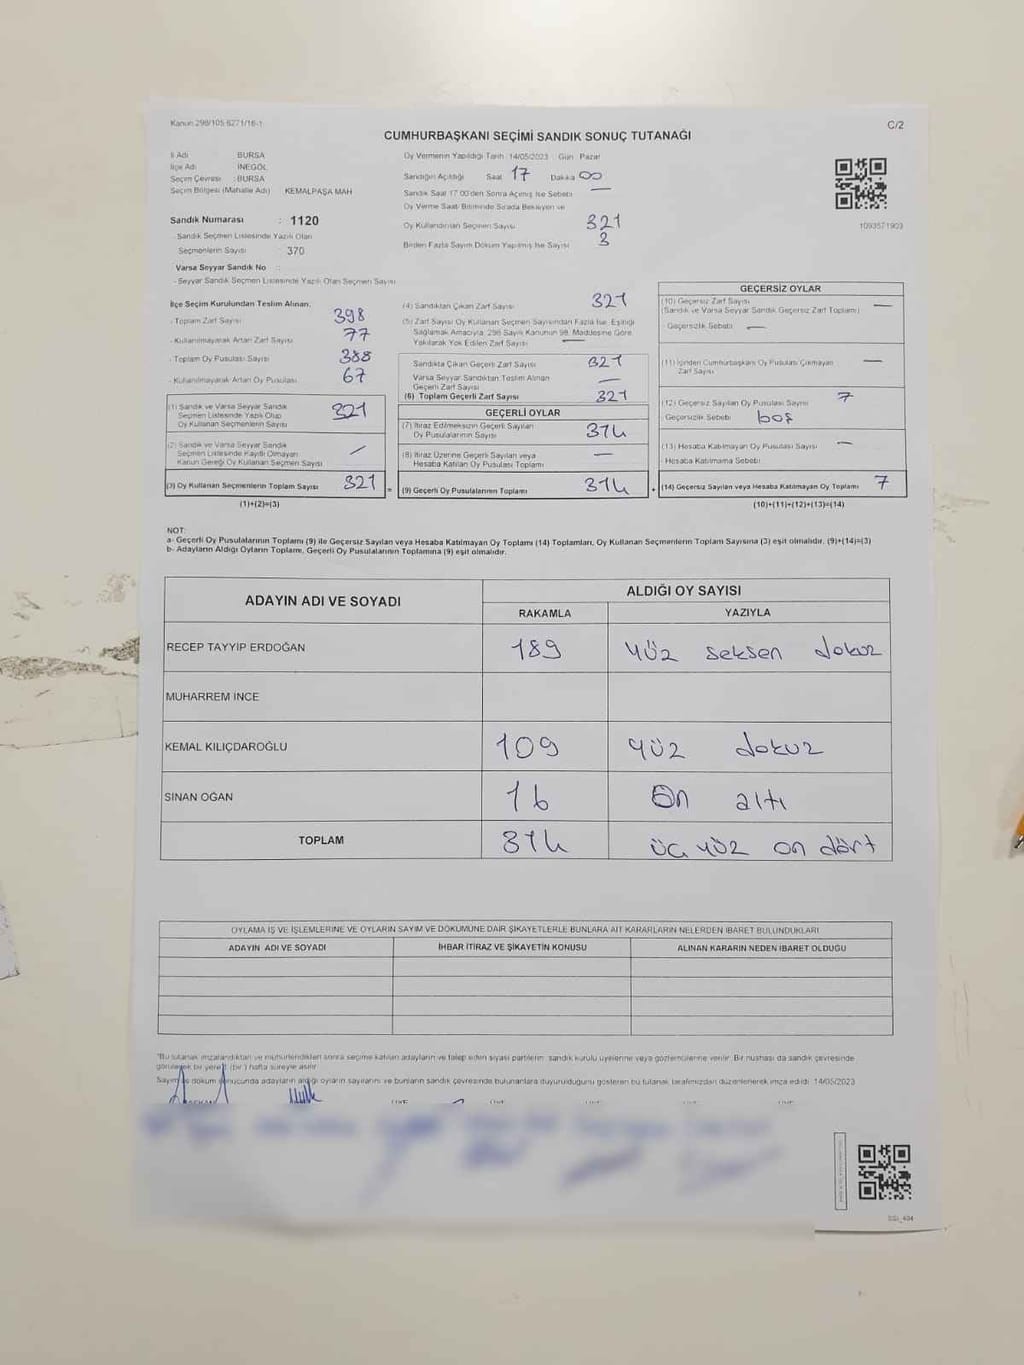 Kanun 298/105 6271/16-1
C/2
CUMHURBAŞKANI SEÇİMİ SANDIK SONUÇ TUTANAĞI
İl Adı BURSA
İlçe Adı : İNEGÖL
Seçim Çevresi : BURSA
Seçim Bölgesi (Mahalle Adı) KEMALPAŞA MAH
Sandık Numarası : 1120
- Sandık Seçmen Listesinde Yazılı Olan
Seçmenlerin Sayısı : 370
Varsa Seyyar Sandık No :
- Seyyar Sandık Seçmen Listesinde Yazılı Olan Seçmen Sayısı
Oy Vermenin Yapıldığı Tarih 14/05/2023 Gün Pazar
Sandığın Açıldığı Saat 17 Dakika 00
Sandık Saat 17:00'den Sonra Açılmış İse Sebebi —
Oy Verme Saati Bitiminde Sırada Bekleyen ve
Oy Kullandırılan Seçmen Sayısı 321
Birden Fazla Sayım Döküm Yapılmış İse Sayısı 3
1093571903
İlçe Seçim Kurulundan Teslim Alınan;
- Toplam Zarf Sayısı 398
- Kullanılmayarak Artan Zarf Sayısı 77
- Toplam Oy Pusulası Sayısı 388
- Kullanılmayarak Artan Oy Pusulası 67
(1) Sandık ve Varsa Seyyar Sandık
Seçmen Listesinde Yazılı Olup
Oy Kullanan Seçmenlerin Sayısı 321
(2) Sandık ve Varsa Seyyar Sandık
Seçmen Listesinde Kaydı Olmayan
Kanun Gereği Oy Kullanan Seçmen Sayısı —
(3) Oy Kullanan Seçmenlerin Toplam Sayısı 321 =
(1)+(2)=(3)
(4) Sandıktan Çıkan Zarf Sayısı 321
(5) Zarf Sayısı Oy Kullanan Seçmen Sayısından Fazla İse, Eşitliği
Sağlamak Amacıyla, 298 Sayılı Kanunun 98. Maddesine Göre
Yakılarak Yok Edilen Zarf Sayısı —
Sandıkta Çıkan Geçerli Zarf Sayısı 321
Varsa Seyyar Sandıktan Teslim Alınan
Geçerli Zarf Sayısı —
(6) Toplam Geçerli Zarf Sayısı 321
GEÇERLİ OYLAR
(7) İtiraz Edilmeksizin Geçerli Sayılan
Oy Pusulalarının Sayısı 314
(8) İtiraz Üzerine Geçerli Sayılan veya
Hesaba Katılan Oy Pusulası Toplamı —
(9) Geçerli Oy Pusulalarının Toplamı 314 +
GEÇERSİZ OYLAR
(10) Geçersiz Zarf Sayısı
(Sandık ve Varsa Seyyar Sandık Geçersiz Zarf Toplamı) —
- Geçersizlik Sebebi —
(11) İçinden Cumhurbaşkanı Oy Pusulası Çıkmayan
Zarf Sayısı —
(12) Geçersiz Sayılan Oy Pusulası Sayısı 7
- Geçersizlik Sebebi boş
(13) Hesaba Katılmayan Oy Pusulası Sayısı —
- Hesaba Katılmama Sebebi
(14) Geçersiz Sayılan veya Hesaba Katılmayan Oy Toplamı 7
(10)+(11)+(12)+(13)=(14)
NOT:
a- Geçerli Oy Pusulalarının Toplamı (9) ile Geçersiz Sayılan veya Hesaba Katılmayan Oy Toplamı (14) Toplamları, Oy Kullanan Seçmenlerin Toplam Sayısına (3) eşit olmalıdır. (9)+(14)=(3)
b- Adayların Aldığı Oyların Toplamı, Geçerli Oy Pusulalarının Toplamına (9) eşit olmalıdır.
ADAYIN ADI VE SOYADI ALDIĞI OY SAYISI
RAKAMLA YAZIYLA
RECEP TAYYİP ERDOĞAN 189 yüz seksen dokuz
MUHARREM İNCE
KEMAL KILIÇDAROĞLU 109 yüz dokuz
SİNAN OĞAN 16 On altı
TOPLAM 314 üç yüz on dört
OYLAMA İŞ VE İŞLEMLERİNE VE OYLARIN SAYIM VE DÖKÜMÜNE DAİR ŞİKAYETLERLE BUNLARA AİT KARARLARIN NELERDEN İBARET BULUNDUKLARI
ADAYIN ADI VE SOYADI İHBAR İTİRAZ VE ŞİKAYETİN KONUSU ALINAN KARARIN NEDEN İBARET OLDUĞU
*Bu tutanak imzalandıktan ve mühürlendikten sonra seçime katılan adayların ve talep eden siyasi partilerin sandık kurulu üyelerine veya gözlemcilerine verilir. Bir nüshası da sandık çevresinde
görülecek bir yere (bir) hafta süreyle asılır.
Sayım ve döküm sonucunda adayların aldığı oyların sayılarını ve bunların sandık çevresinde bulunanlara duyurulduğunu gösteren bu tutanak tarafımızdan düzenlenerek imza edildi. 14/05/2023